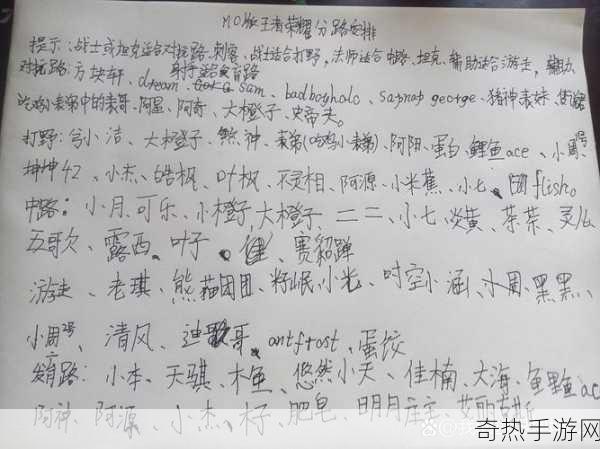 MC版王者荣耀分路安排
提示:战士或坦克适合对抗路,刺客、战士适合打野,法师适合中路、坦克、辅助适合游走,
对抗路:方块轩、dream、sam、badboyhalo、sapnap george、猪神表妹、
吃鸡小表弟中的表哥、阿星、阿奇、大橙子、史帝夫。
打野:兮小洁、大橙子、煞神、表弟(吃鸡小表弟)、阿阳、蛋白、鲤鱼ace、小周号
坤坤42、小杰、皓枫、叶枫、不灵相、阿源、小米蕉、小七、
中路:小月、可乐、小橙子、大橙子、二二、小七、炎黄、茶茶、灵儿
五歌、露西、叶子、健、赛貂蝉
游走、老琪、熊猫团团、籽岷、小光、时空小涵、小周、黑黑、
小周2号、清风、迪哥、antfrost、蛋饺
发育路:小本、天骐、木鱼、悠然小天、佳楠、大海、鱼ac
阿神、阿源、小杰、籽、肥皂、明月庄主、
奇热手游网